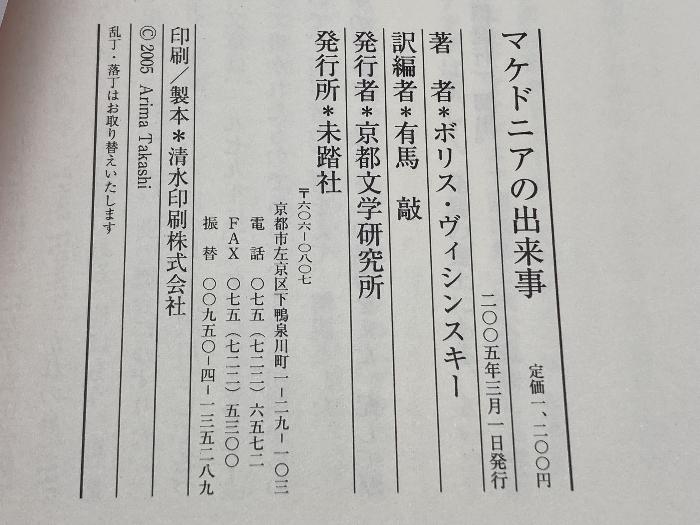 マケドニアの出来事
定価一、二〇〇円
二〇〇五年三月一日発行
著　者＊ボリス・ヴィシンスキー
訳編者＊有馬　敲
発行者＊京都文学研究所
発行所＊未踏社
〒六〇六－〇八〇七
京都市左京区下鴨泉川町一－二九－一〇三
電　話　〇七五（七二二）六五七二
ＦＡＸ　〇七五（七二二）五三〇〇
振　替　〇〇九五〇－四－一三五二八九
印刷／製本＊清水印刷株式会社
© 2005 Arima Takashi
乱丁・落丁はお取り替えいたします